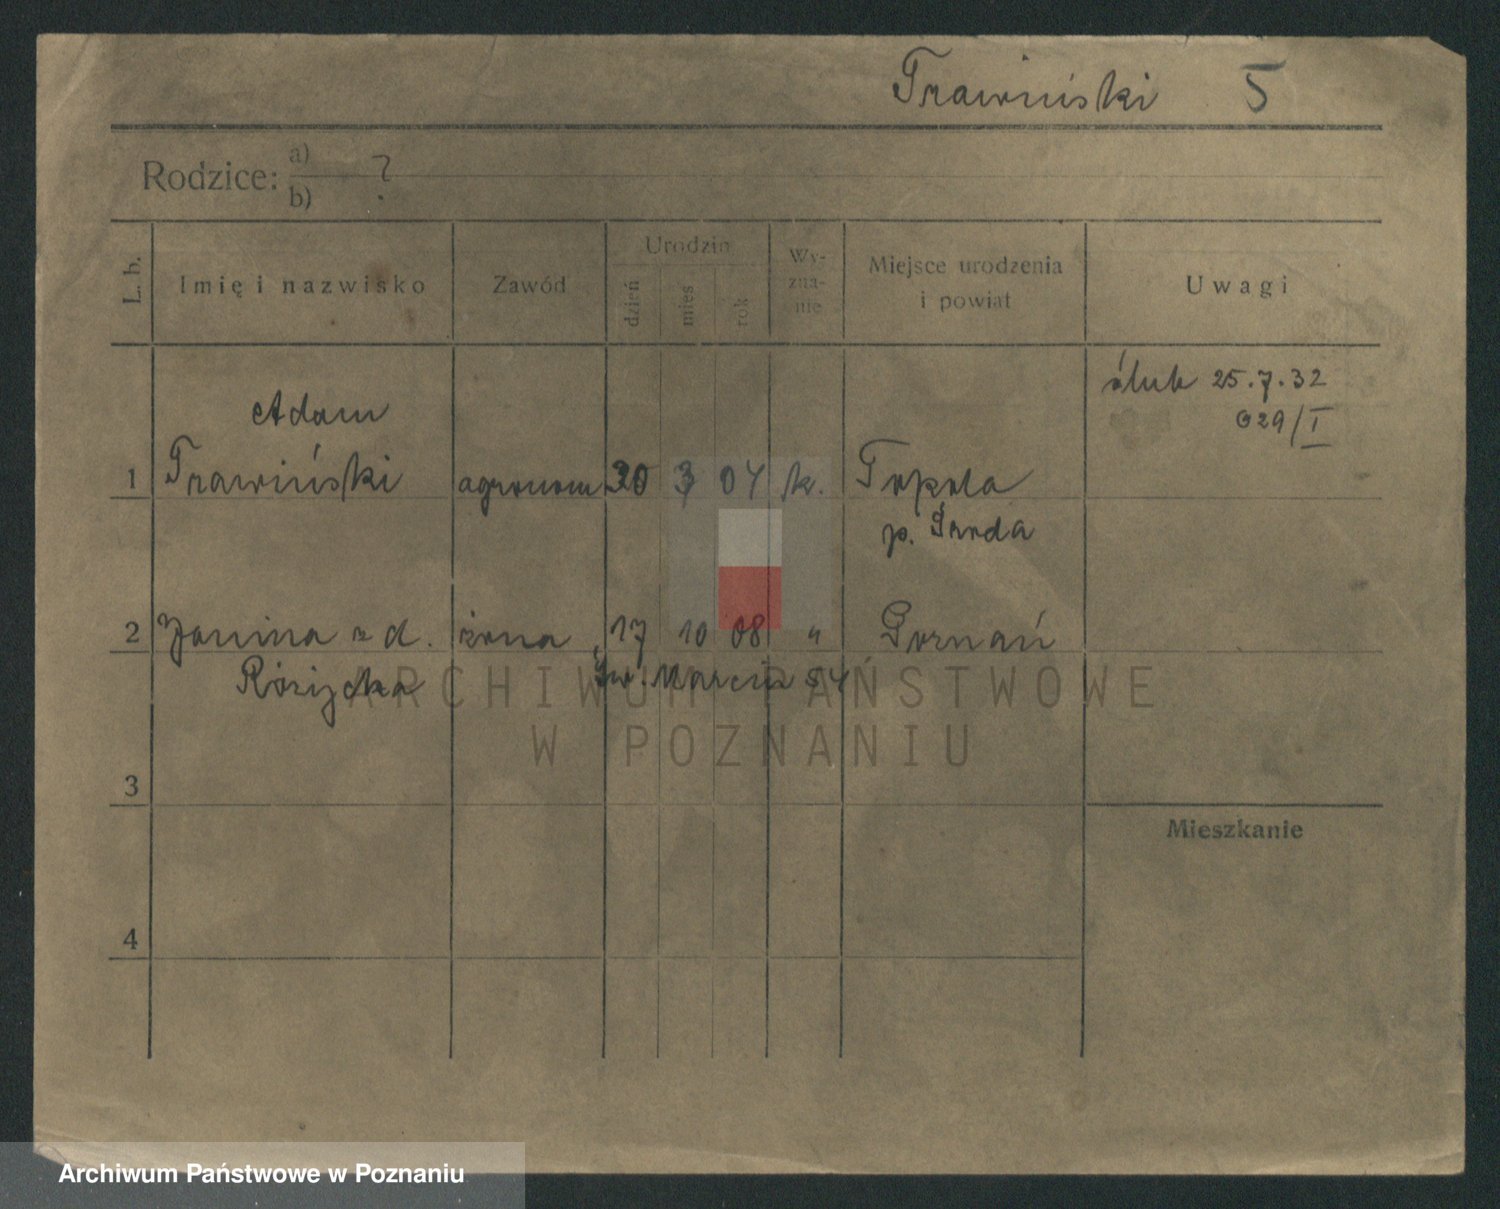 Trawiński 5
Rodzice: a) ?
b)
L. b.
Imię i nazwisko
Zawód
Urodzin
dzień
mies
rok
Wy-
zna-
nie
Miejsce urodzenia
i powiat
Uwagi
ślub 25.7.32
029/I
Adam
1 Trawiński agronom 20 3 04 k. Topola
p. Środa
2 Janina z d. żona 17 10 08 " Poznań
Różycka Św. Marcin 54
ARCHIWUM PAŃSTWOWE
W POZNANIU
3
Mieszkanie
4
Archiwum Państwowe w Poznaniu